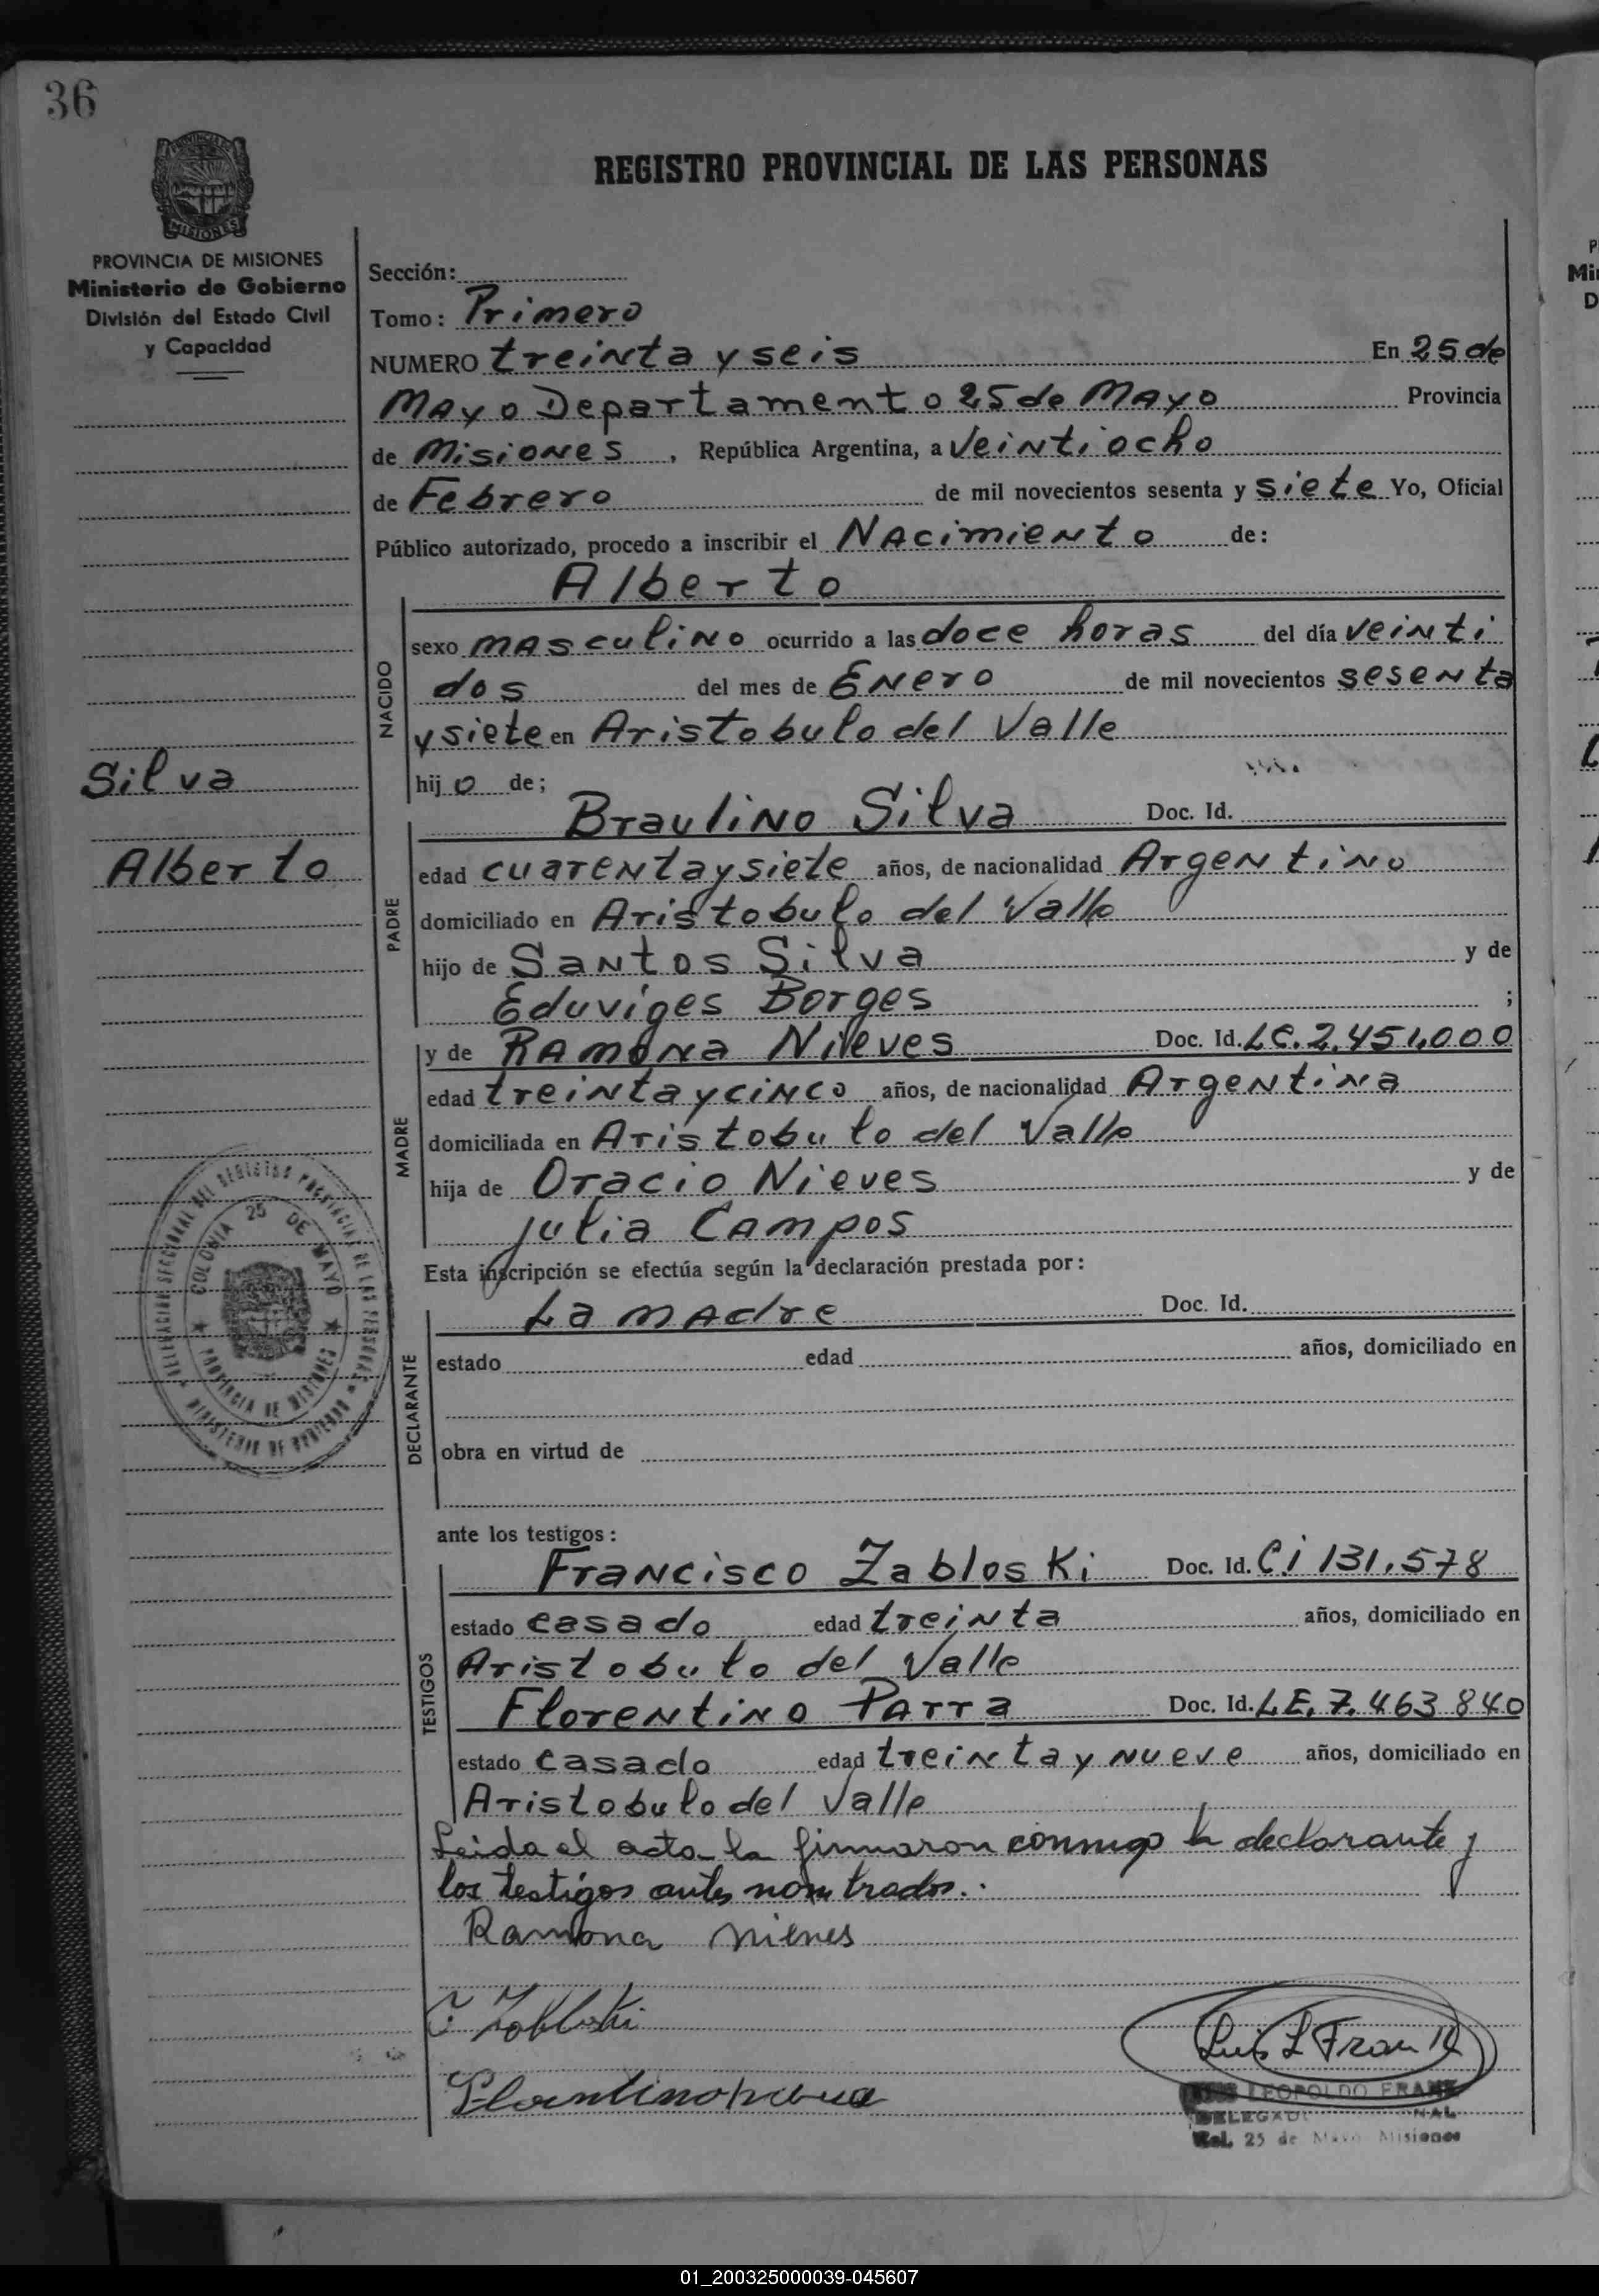 36
REGISTRO PROVINCIAL DE LAS PERSONAS
MISIONES
PROVINCIA DE MISIONES
Ministerio de Gobierno
División del Estado Civil
y Capacidad
Silva
Alberto
Sección:
Tomo: Primero
NUMERO treinta y seis En 25 de
Mayo Departamento 25 de Mayo Provincia
de Misiones, República Argentina, a veintiocho
de Febrero de mil novecientos sesenta y siete Yo, Oficial
Público autorizado, procedo a inscribir el Nacimiento de:
Alberto
NACIDO
sexo masculino ocurrido a las doce horas del día veinti
dos del mes de Enero de mil novecientos sesenta
y siete en Aristobulo del Valle
hijo de;
Braulino Silva Doc. Id.
PADRE
edad cuarenta y siete años, de nacionalidad Argentino
domiciliado en Aristobulo del Valle
hijo de Santos Silva y de
Eduviges Borges ;
y de Ramona Nieves Doc. Id. LC. 2.451.000
MADRE
edad treinta y cinco años, de nacionalidad Argentina
domiciliada en Aristobulo del Valle
hija de Oracio Nieves y de
Julia Campos
Esta inscripción se efectúa según la declaración prestada por:
La madre Doc. Id.
DECLARANTE
estado edad años, domiciliado en
obra en virtud de
ante los testigos:
Francisco Zabloski Doc. Id. C.i 131.578
TESTIGOS
estado casado edad treinta años, domiciliado en
Aristobulo del Valle
Florentino Parra Doc. Id. L.E. 7.463 840
estado casado edad treinta y nueve años, domiciliado en
Aristobulo del Valle
Leida el acta la firmaron conmigo la declarante y
los testigos antes nombrados.
Ramona nieves
Luis L Frank
LEOPOLDO FRANK
Col. 25 de Mayo Misiones
DELEGACION SECCIONAL DEL REGISTRO PROVINCIAL DE LAS PERSONAS
COLONIA 25 DE MAYO
PROVINCIA DE MISIONES
MINISTERIO DE GOBIERNO
01_200325000039-045607